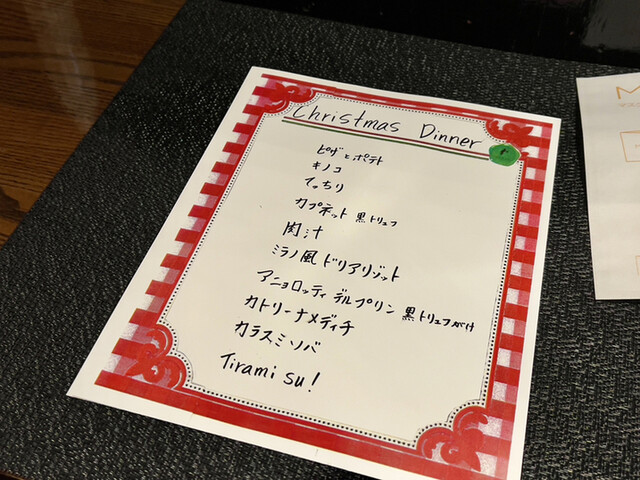 Christmas Dinner
ピザとポテト
キノコ
てっちり
カプネット 黒トリュフ
肉汁
ミラノ風ドリアリゾット
アニョロッティ デルプリン 黒トリュフがけ
カトリーナメディチ
カラスミソバ
Tirami su!
M